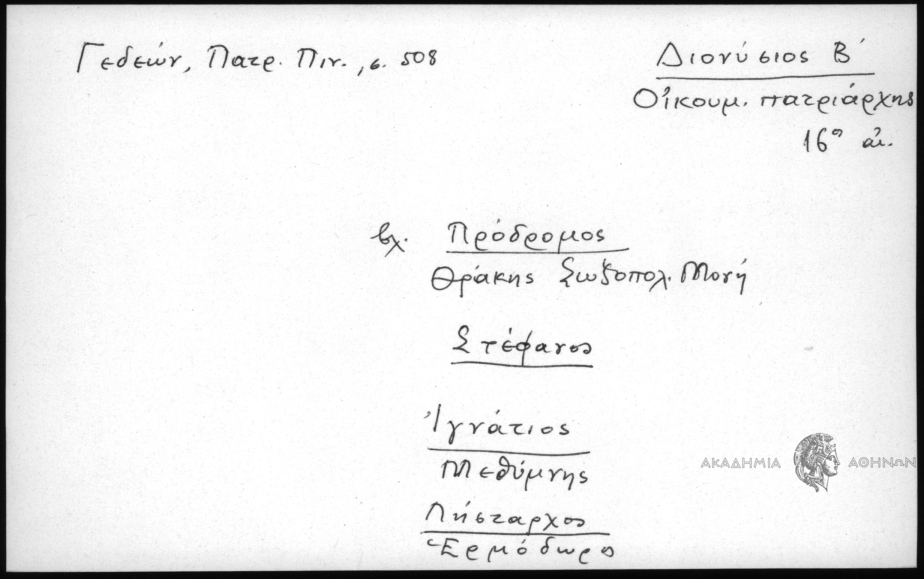 Γεδεών, Πατρ. Πιν., σ. 508
Διονύσιος Β΄
Οἰκουμ. πατριάρχης
16ο αἰ.
βχ. Πρόδρομος
Θράκης Σωζοπολ. Μονή
Στέφανος
Ἰγνάτιος
Μεθύμνης
Λήσταρχος
Ἑρμόδωρος
ΑΚΑΔΗΜΙΑ ΑΘΗΝΩΝ